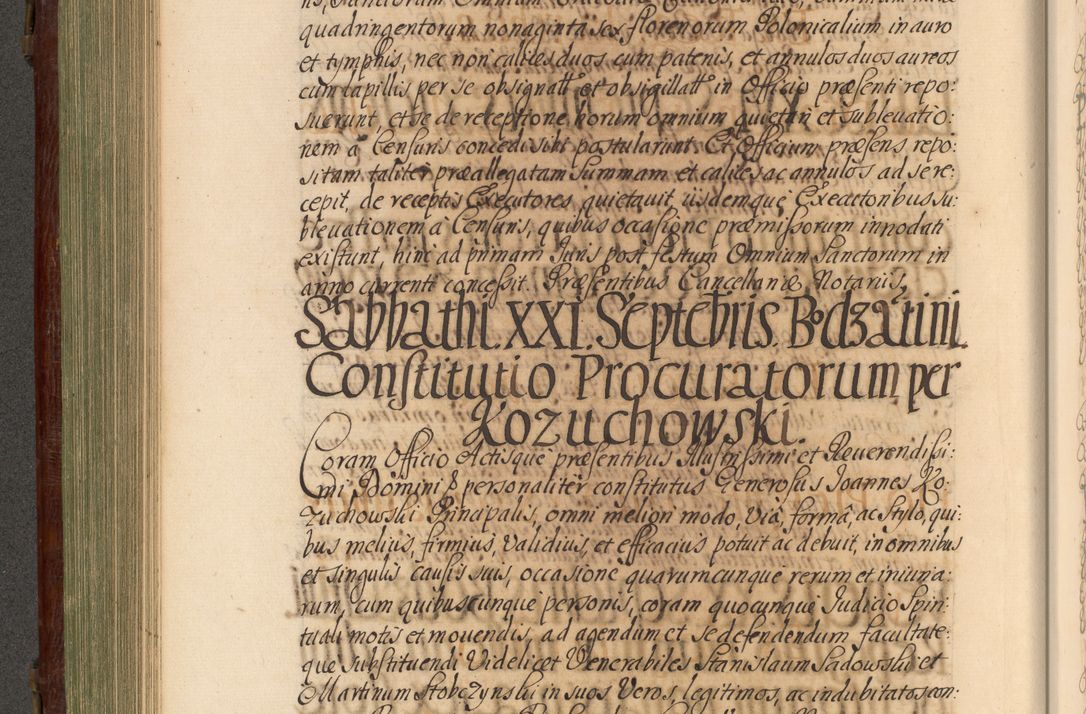 quadringentorum nonaginta sex florenorum Polonicalium in auro
et tymphis, nec non calices duos cum patenis, et annulos duos aureos
cum lapillis per se obsignatt et obsigillatt in Officio præsenti repo:
suerunt, et se de receptione horum omnium quietari et sublevatio:
nem â Censuris concedi sibi postularunt. Et Officium præsens repo:
sitam taliter præallegatam summam et calices ac annulos ad se re:
cepit, de receptis Executores quietavit iisdemque Executoribus su:
blevationem â Censuris, quibus occasione præmissorum innodati
existunt, hinc ad primam Juris post festum Omnium Sanctorum in
anno currenti concessit. Præsentibus Cancellariæ Notariis,
Sabbathi XXI. Septebris. Bodzatini.
Constitutio Procuratorum per
Kozuchowski.
Coram Officio Actisque præsentibus Illustrissimi et Reverendissi:
mi Domini personaliter constitutus Generosus Joannes Ko:
zuchowski Principalis, omni meliori modo, viâ, formâ, ac stylo, qui:
bus melius, firmius, validius, et efficacius potuit ac debuit, in omnibus
et singulis causis suis, occasione quarumcunque rerum et iniuria:
rum, cum quibuscunque personis, coram quocunque Judicio Spiri:
tuali motis et movendis, ad agendum et se defendendum facultate:
que substituendi Videlicet Venerabiles Stanislaum Sadowski et
Martinum Stobczynski in suos Veros, legitimos, ac indubitatos con: